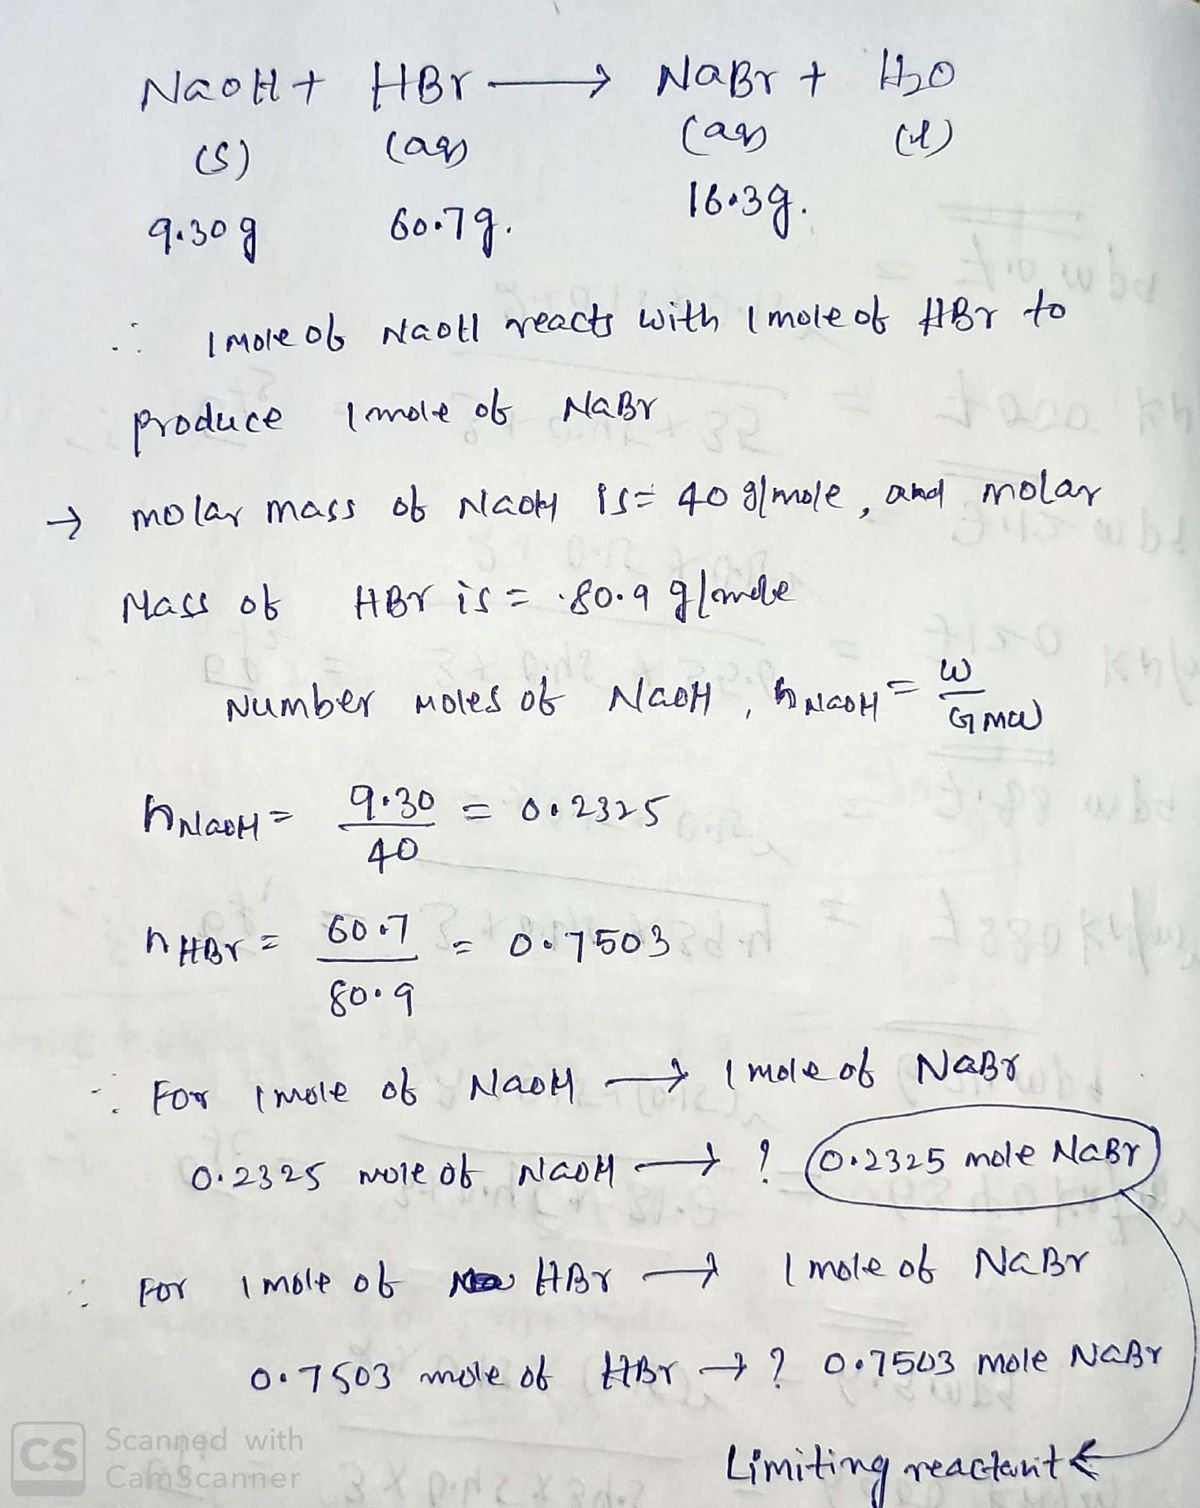 NaOH + HBr → NaBr + H2O
(s) (aq) (aq) (l)
9.30g 60.7g. 16.3g.
∴ 1 mole of NaOH reacts with 1 mole of HBr to
produce 1 mole of NaBr
→ molar mass of NaOH is = 40 g/mole, and molar
Mass of HBr is = 80.9 g/mole
Number moles of NaOH, nNaOH = W/GMW
nNaOH = 9.30/40 = 0.2325
nHBr = 60.7/80.9 = 0.7503
∴ For 1 mole of NaOH → 1 mole of NaBr
0.2325 mole of NaOH → ? 0.2325 mole NaBr
∴ For 1 mole of HBr → 1 mole of NaBr
0.7503 mole of HBr → ? 0.7503 mole NaBr
Limiting reactant
CS Scanned with
CamScanner